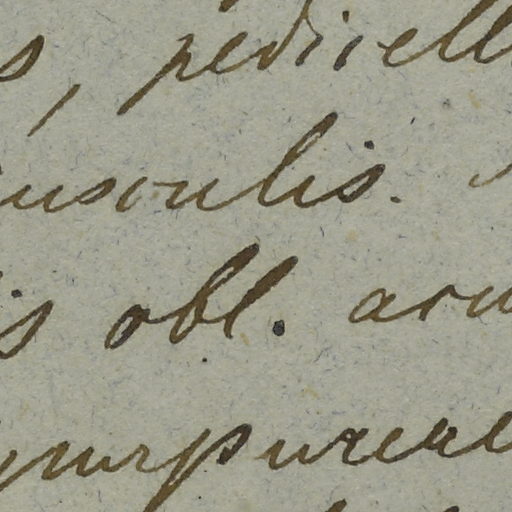 s, pedicell
usculis.
is obl. acu
purpureae